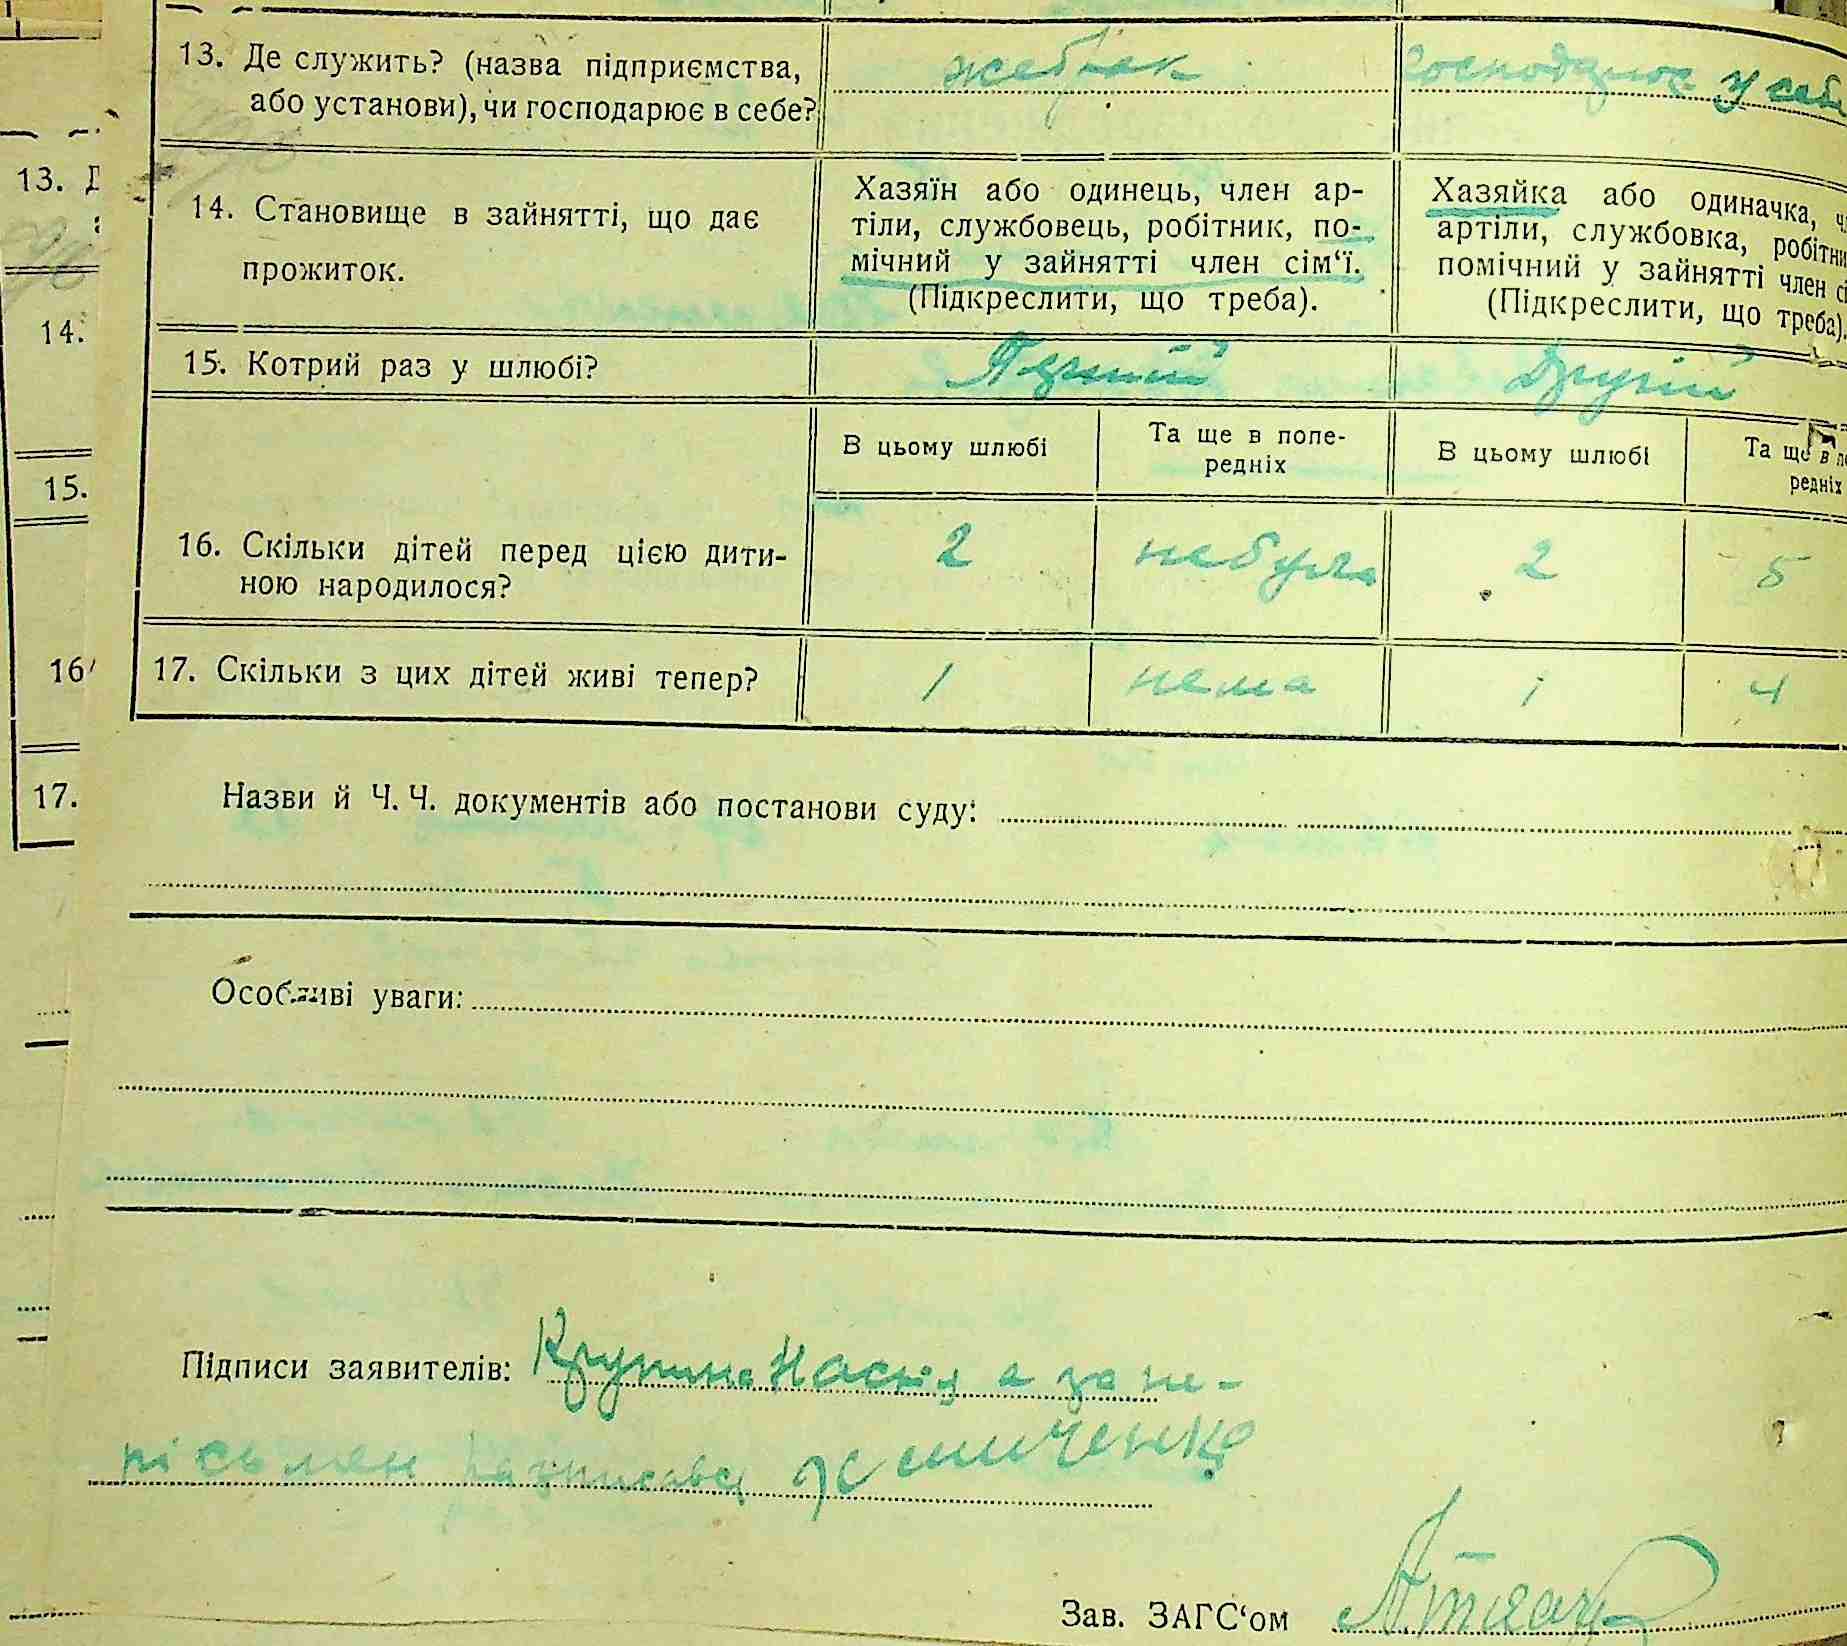 13. Де служить? (назва підприємства, жебрак господарює у себе
або установи), чи господарює в себе?
13.
14. Становище в зайнятті, що дає
прожиток.
Хазяїн або одинець, член ар-
тіли, службовець, робітник, по-
мічний у зайнятті член сім‘ї.
(Підкреслити, що треба).
Хазяйка або одиначка,
артіли, службовка,
помічний у зайнятті член
(Підкреслити, що треба).
14.
15. Котрий раз у шлюбі? Перший Другий
В цьому шлюбі
Та ще в попе-
редніх
В цьому шлюбі
Та ще в
редніх
15.
16. Скільки дітей перед цією дити- 2 небуло 2 5
ною народилося?
16
17. Скільки з цих дітей живі тепер? 1 нема 1 4
17.
Назви й Ч. Ч. документів або постанови суду:
Особливі уваги:
Підписи заявителів: Крупина Настя а за не-
письмен
Зав. ЗАГС‘ом